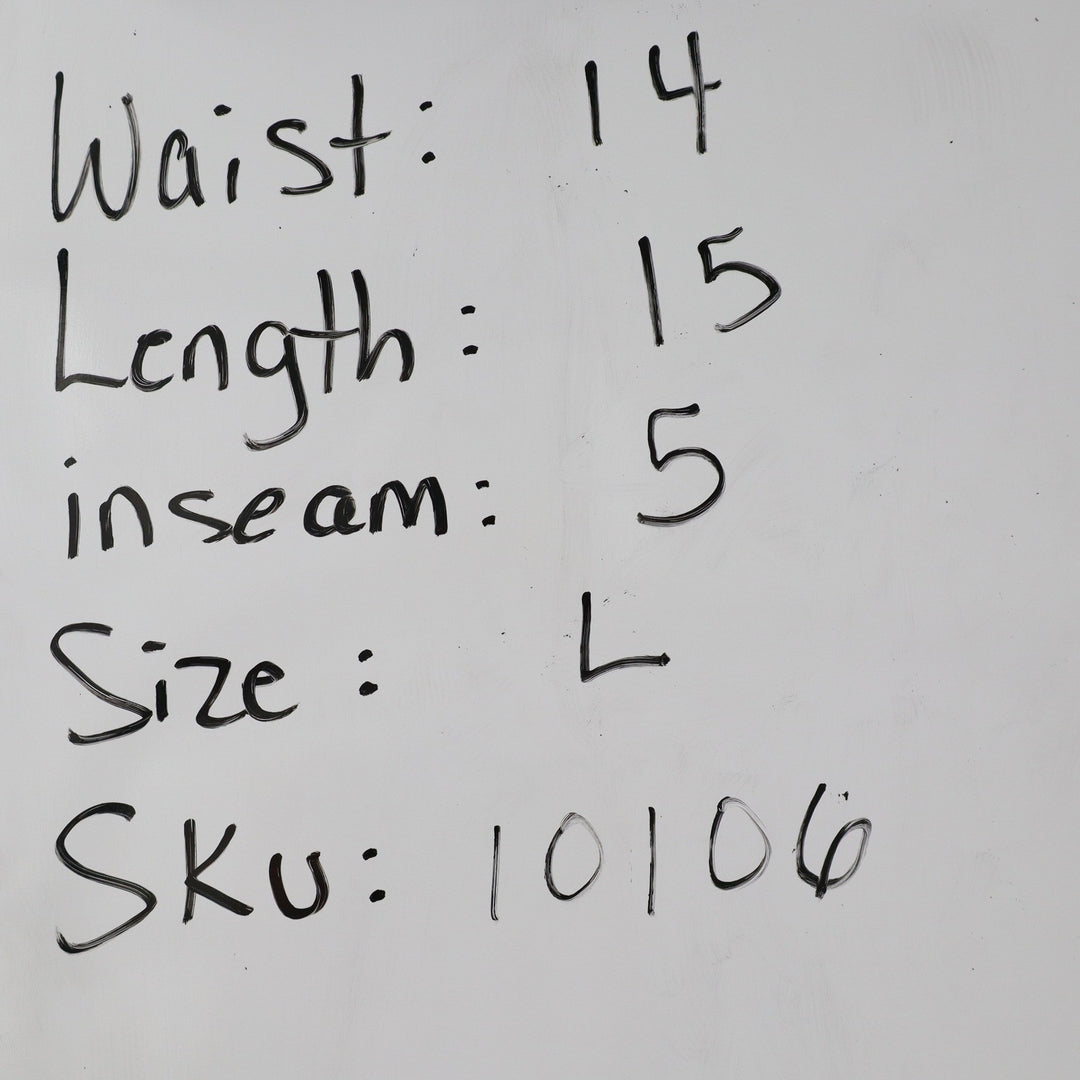 Waist: 14
Length: 15
inseam: 5
Size: L
SKU: 10106